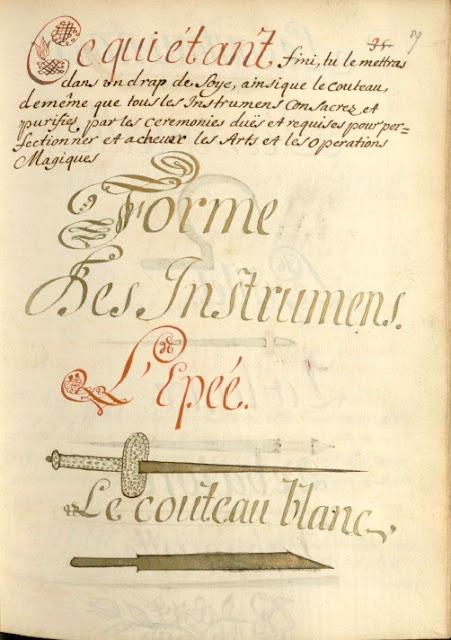 89
Ce qui étant fini, tu le mettras
dans un drap de soye, ainsi que le couteau,
de même que tous les Instrumens Consacrez et
purifies, par les ceremonies duës et requises pour per=
fectionner et achever les Arts et les Operations
Magiques
Forme
Des Instrumens.
L'Epeé.
Le couteau blanc